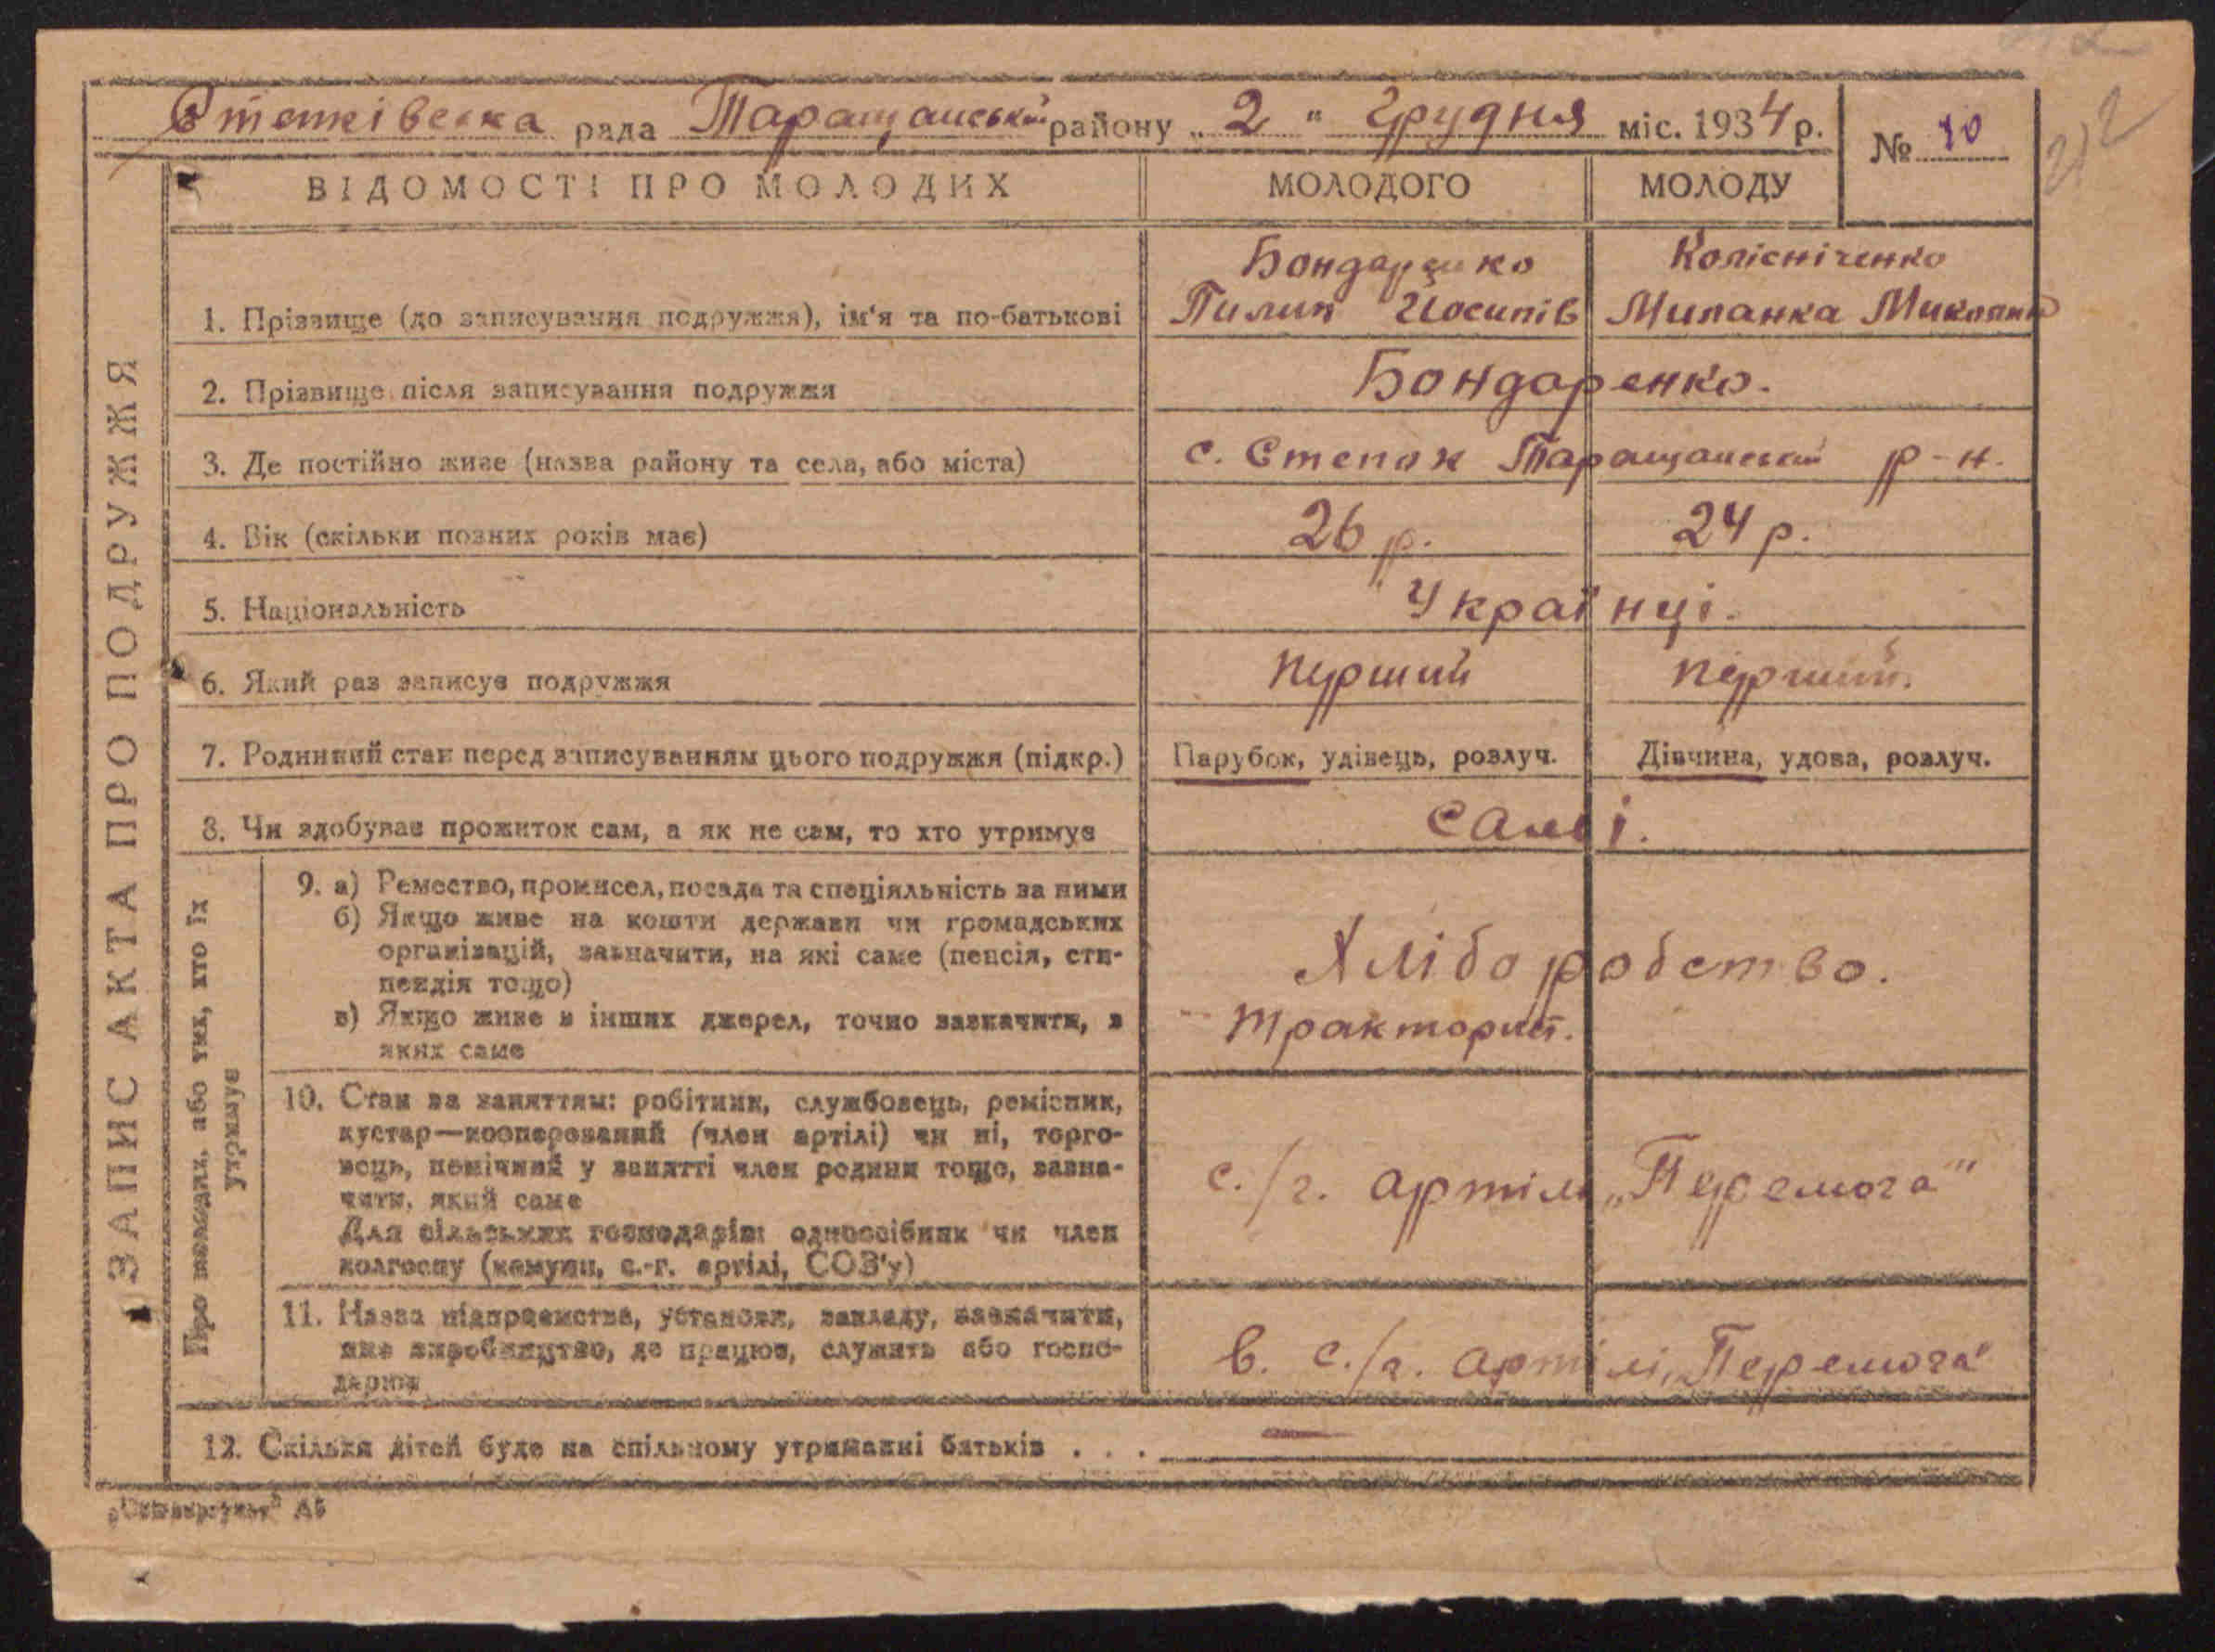 Степківська рада Таращанський району „2" Грудня міс. 1934 р.
№ 10
212
ВІДОМОСТІ ПРО МОЛОДИХ
МОЛОДОГО
МОЛОДУ
ЗАПИС АКТА ПРО ПОДРУЖЖЯ
1. Прізвище (до записування подружжя), ім'я та по-батькові
Бондаренко
Пилип Йосипів
Колісніченко
Миланка Миколаїв
2. Прізвище після записування подружжя
Бондаренко.
3. Де постійно живе (назва району та села, або міста)
с. Степок Таращанський р-н.
4. Вік (скільки повних років має)
26 р.
24 р.
5. Національність
Українці.
6. Який раз записує подружжя
перший
перший.
7. Родинний стан перед записуванням цього подружжя (підкр.)
Парубок, удівець, розлуч.
Дівчина, удова, розлуч.
8. Чи здобуває прожиток сам, а як не сам, то хто утримує
самі.
Про молодих, або тих, хто їх
утримує
9. а) Ремество, промисел, посада та спеціяльність за ними
б) Якщо живе на кошти держави чи громадських
організацій, зазначити, на які саме (пенсія, сти-
пендія тощо)
в) Якщо живе з інших джерел, точно зазначити, з
яких саме
Хліборобство.
тракторист.
10. Стан за заняттям: робітник, службовець, ремісник,
кустар—кооперований (член артілі) чи ні, торго-
вець, помічний у занятті член родини тощо, зазна-
чити, який саме
Для сільських господарів: одноосібник чи член
колгоспу (комуни, с.-г. артілі, СОЗ'у)
с./г. артіль „Перемога"
11. Назва підприємства, установи, закладу, зазначити,
яке виробництво, де працює, служить або госпо-
дарює
в. с./г. артілі „Перемога"
12. Скільки дітей буде на спільному утриманні батьків . . .
—